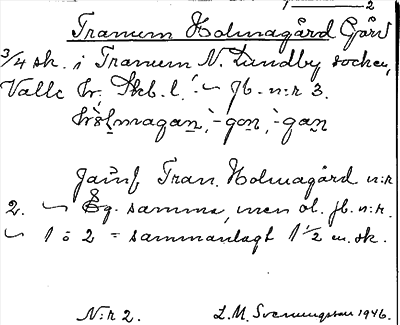 2
Tranum Holmagård Gård
3/4 sk. i Tranum N. Lundby socken,
Valle hr, Skb. l. ~ Jb. n:r 3.
hòlmagan, -gon, -gan
Jämf Tran. Holmagård n:r
2. ~ Eg. samma, men ol. jb. n:r.
~ 1 o 2 = sammanlagt 1 1/2 m. sk.
N:r 2. L. M. Svenungsson 1946.